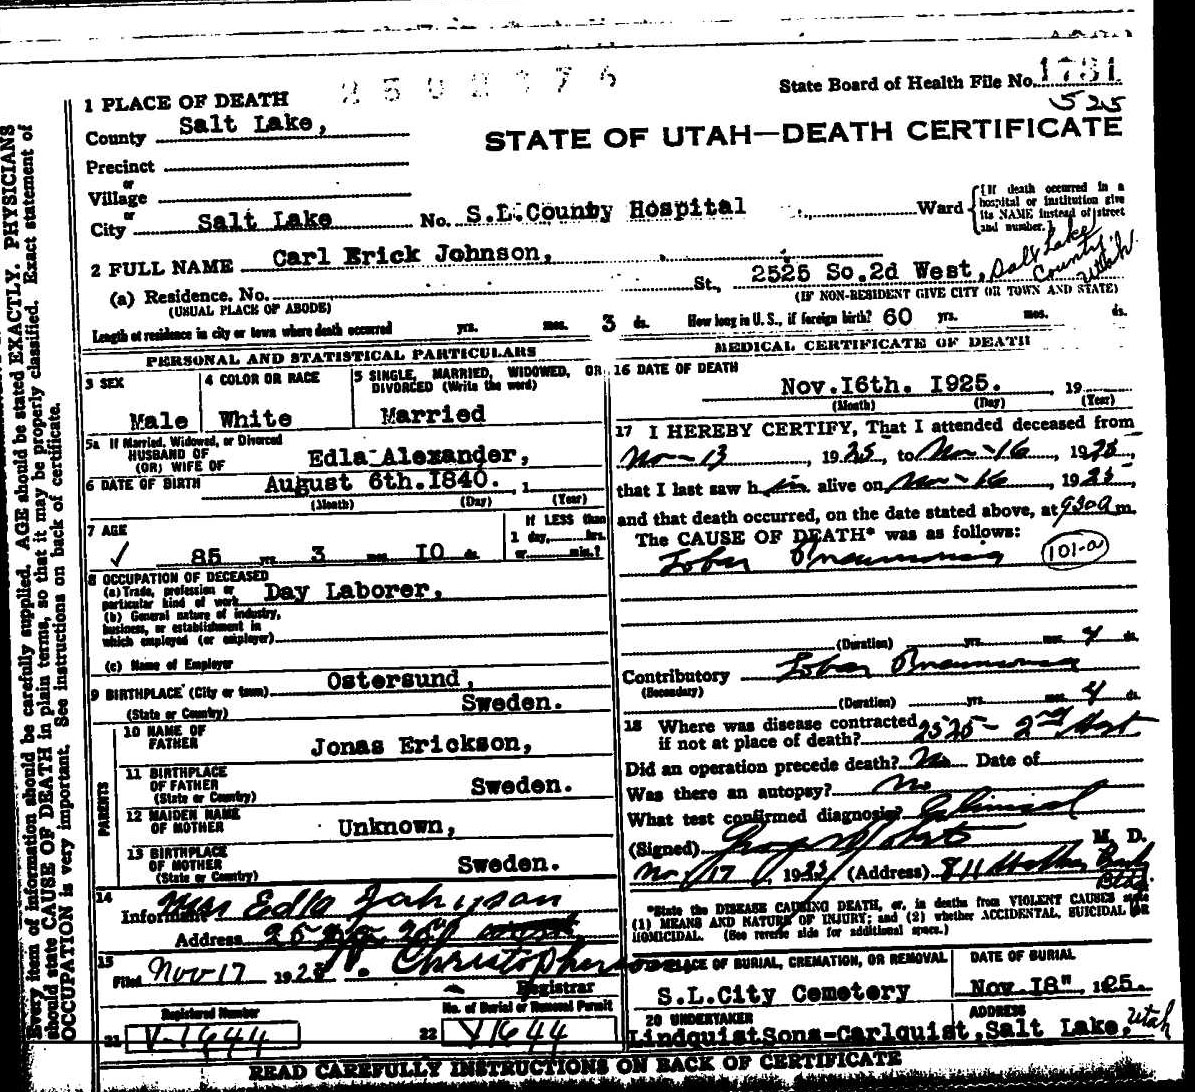 State Board of Health File No. 1731
525
1 PLACE OF DEATH
County Salt Lake,
STATE OF UTAH—DEATH CERTIFICATE
Precinct
or
Village
or
City Salt Lake No. S.L.County Hospital Ward
(If death occurred in a hospital or institution give its NAME instead of street and number.)
2 FULL NAME Carl Erick Johnson,
(a) Residence. No. St., 2525 So.2d West, Salt Lake County Utah
(USUAL PLACE OF ABODE) (IF NON-RESIDENT GIVE CITY OR TOWN AND STATE)
Length of residence in city or town where death occurred yrs. mos. 3 ds. How long in U.S., if foreign birth? 60 yrs. mos. ds.
PERSONAL AND STATISTICAL PARTICULARS
3 SEX
Male
4 COLOR OR RACE
White
5 SINGLE, MARRIED, WIDOWED, OR DIVORCED (Write the word)
Married
5a If Married, Widowed, or Divorced
HUSBAND OF
(OR) WIFE OF Edla Alexander,
6 DATE OF BIRTH August 6th.1840. , 1
(Month) (Day) (Year)
7 AGE
85 yrs. 3 mos. 10 ds.
If LESS than
1 day, hrs.
or min.?
8 OCCUPATION OF DECEASED
(a) Trade, profession or
particular kind of work Day Laborer,
(b) General nature of industry,
business, or establishment in
which employed (or employer)
(c) Name of Employer
9 BIRTHPLACE (City or town) Ostersund,
(State or Country) Sweden.
PARENTS
10 NAME OF
FATHER Jonas Erickson,
11 BIRTHPLACE
OF FATHER Sweden.
(State or Country)
12 MAIDEN NAME
OF MOTHER Unknown,
13 BIRTHPLACE
OF MOTHER Sweden.
(State or Country)
14
Informant Edla Johnson
Address
15
Filed Nov 17 192 Christopherson
Registrar
Registered Number
21 V-1644
No. of Burial or Removal Permit
22 V1644
MEDICAL CERTIFICATE OF DEATH
16 DATE OF DEATH
Nov.16th. 1925. 19
(Month) (Day) (Year)
17 I HEREBY CERTIFY, That I attended deceased from
Nov-13, 1925, to Nov-16, 1925,
that I last saw him alive on Nov-16, 1925,
and that death occurred, on the date stated above, at 930a m.
The CAUSE OF DEATH* was as follows:
Lobar Pneumonia 101-a
(Duration) yrs. mos. 4 ds.
Contributory Lobar Pneumonia
(Secondary)
(Duration) yrs. mos. 4 ds.
18 Where was disease contracted
if not at place of death? 2525- 2nd West
Did an operation precede death? No Date of
Was there an autopsy? No
What test confirmed diagnosis? Clinical
(Signed) M. D.
Nov 17, 1925 (Address) 811 Bldg.
*State the DISEASE CAUSING DEATH, or, in deaths from VIOLENT CAUSES state
(1) MEANS AND NATURE OF INJURY; and (2) whether ACCIDENTAL, SUICIDAL OR
HOMICIDAL. (See reverse side for additional space.)
PLACE OF BURIAL, CREMATION, OR REMOVAL
S.L.City Cemetery
DATE OF BURIAL
Nov 18" 1925.
20 UNDERTAKER
LindquistSons-Carlquist,
ADDRESS
Salt Lake, Utah
READ CAREFULLY INSTRUCTIONS ON BACK OF CERTIFICATE
Every item of information should be carefully supplied. AGE should be stated EXACTLY. PHYSICIANS
should state CAUSE OF DEATH in plain terms, so that it may be properly classified. Exact statement of
OCCUPATION is very important. See instructions on back of certificate.